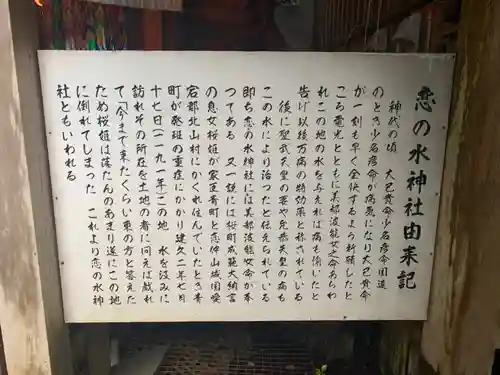 恋の水神社由来記
神代の頃　大己貴命少名彦命国造
のとき少名彦命が病気になり大己貴命
が一刻も早く全快するよう祈願したと
ころ電光とともに美都波能女之命あらわ
れこの地の水を与えれば病も癒いたと
告げ以後万病の特効薬と称されている
後に聖武天皇の妻や允恭天皇の病も
この水により治つたと伝えられている
即ち恋の水神社には美都波能女命が奉
つてある　又一説には桜町成範大納言
の息女桜姫が家臣青町と恋仲山城国愛
宕郡北山村にかくれ住んでいたとき青
町が熱斑の重症にかかり建久二年七月
十七日（一一九一年）この地　水を汲みに
訪れその所在を土地の者に問えば戯れ
て「今まで来たくらい東の方と答えた
ため桜姫は落たんのあまり遂にこの地
に倒れてしまった　これより恋の水神
社ともいわれる